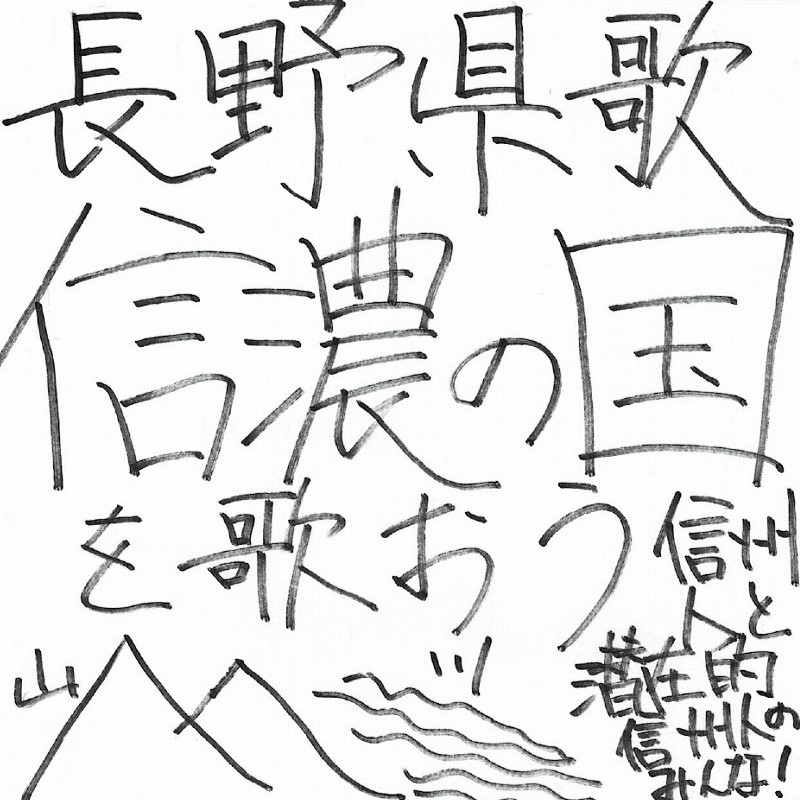 長野県歌
信濃の国
を歌おう
信州
人と
潜在的
信州人の
みんな!
山
川